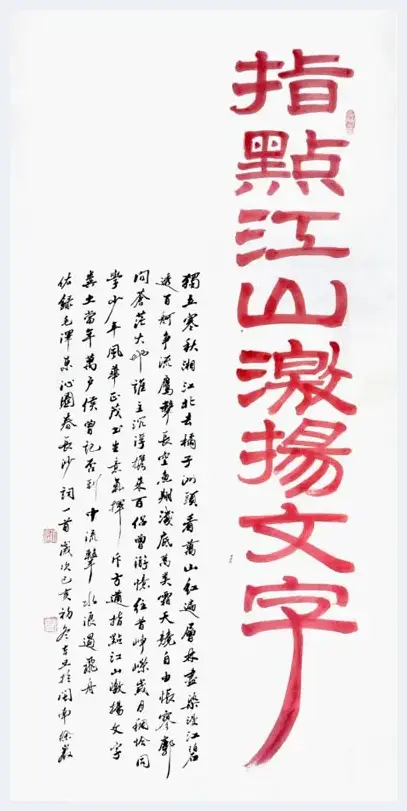 指點江山激揚文字
獨立寒秋湘江北去橘子洲頭看萬山紅遍層林盡染漫江碧
透百舸爭流鷹擊長空魚翔淺底萬类霜天競自由悵寥廓
問蒼茫大地誰主沉浮携來百侶曾游憶往昔崢嶸歲月稠恰同
學少年風華正茂书生意氣揮斥方遒指點江山激揚文字
糞土當年萬户侯曾記否到中流擊水浪遏飛舟
錄毛澤東沁園春長沙詞一首歲次己亥初冬於閩南